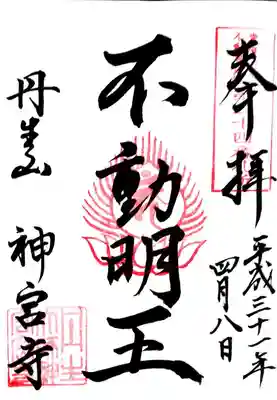 奉拝
平成三十一年
四月八日
不動明王
丹生山
神宮寺